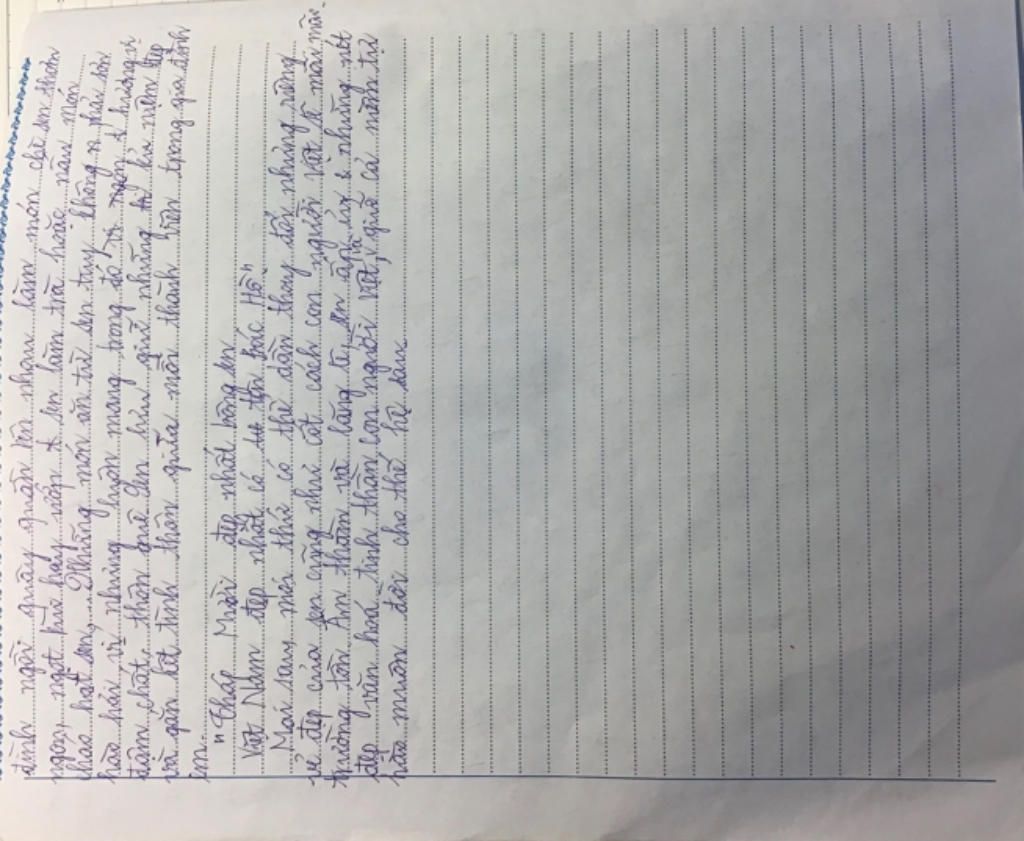 đình ngồi quây quần lên nhau làm món chè sen thơm
ngon, ngọt bùi hay cốp sen làm trà hoặc nấu món
cháo hạt sen,... Những món ăn từ sen tuy không phải sơn
hào hải vị nhưng luôn mang trong đó ngon hương vị
đậm chất thôn quê đến hữu giữ những kỉ niệm đẹp
và gắn kết tình thân giữa mỗi thành viên trong gia đình
em.
"Tháp Mười đẹp nhất bông sen
Việt Nam đẹp nhất có tên Bác Hồ"
Mai sau, mọi thứ có thể dần thay đổi nhưng riêng
vẻ đẹp của sen cũng như cốt cách con người Việt sẽ mãi mãi
trường tồn. Âm thầm và lặng lẽ, sen ấp ủ những nét
đẹp văn hoá tinh thần con người Việt, và giữ cả nồng
hậu muôn đời cho thế hệ sau.